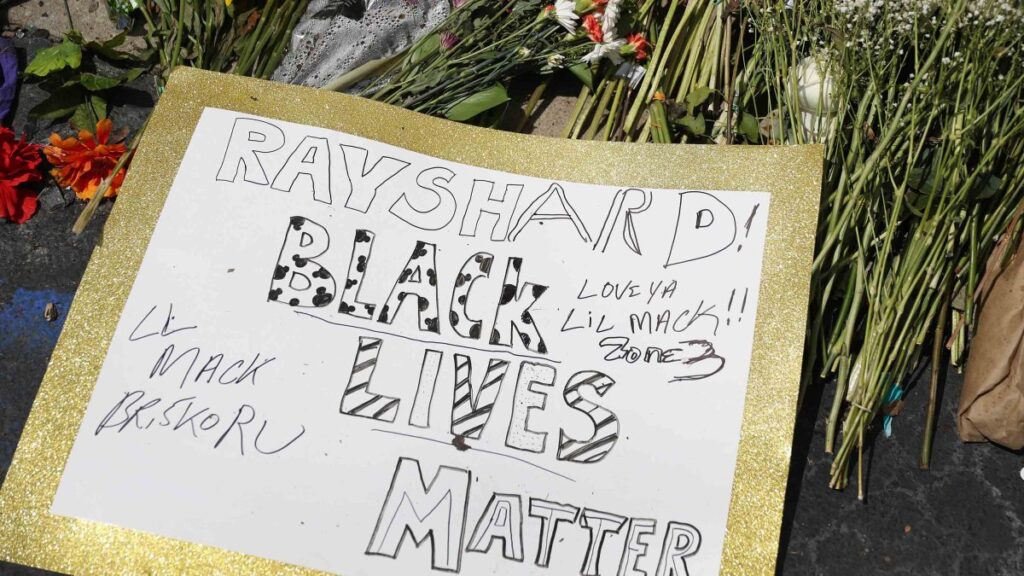 RAYSHARD!
BLACK
LIVES
MATTER
LOVE YA
LIL MACK!!
ZONE 3
LIL
MACK
BRISKO RU